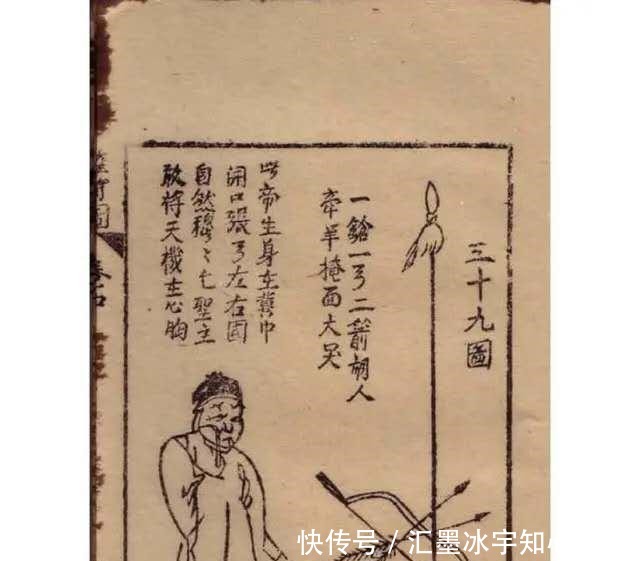 三十九圖
一鎗一弓二箭胡人
牽羊掩面大哭
此帝生身在冀巾
開口張弓左右圓
自然穆〻乞聖主
敢將天機在心胸
快传号／汇墨冰宇知